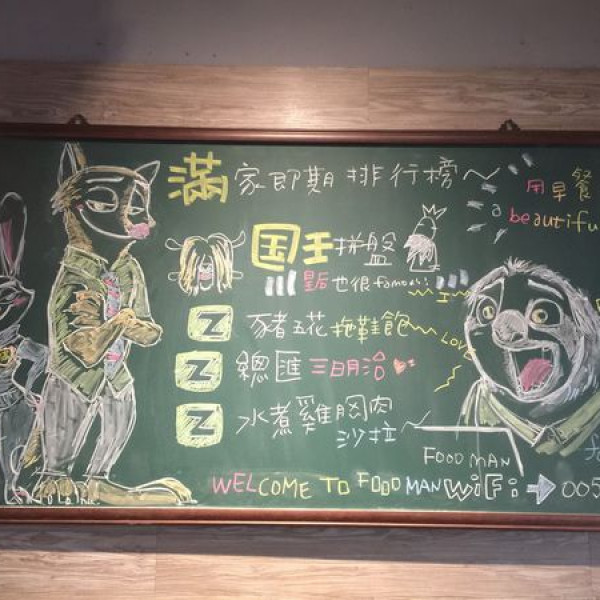 滿家即期排行榜～
用早餐
a beautifu
国王拼盤
皇后也很famous!
Z 豬五花拖鞋飽
LOVE
Z 總匯三明治
Z 水煮雞胸肉
沙拉
FOOD MAN
WELCOME TO FOOD MAN WiFi: → 005